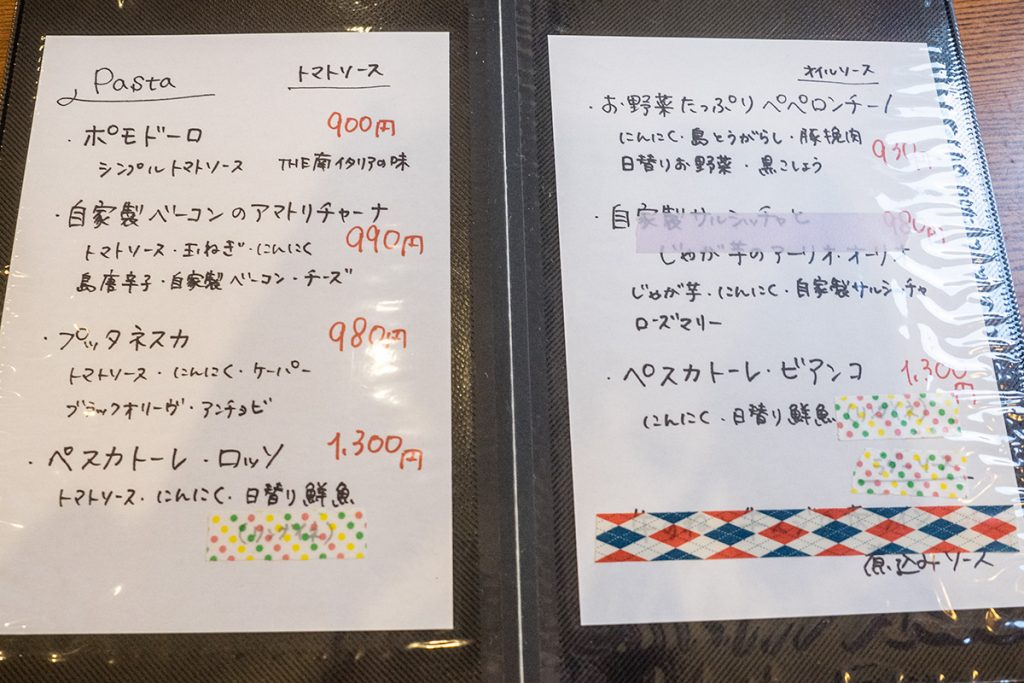 Pasta
トマトソース
・ポモドーロ 900円
シンプルトマトソース THE南イタリアの味
・自家製ベーコンのアマトリチャーナ
990円
トマトソース・玉ねぎ・にんにく
島唐辛子・自家製ベーコン・チーズ
・プッタネスカ 980円
トマトソース・にんにく・ケーパー
ブラックオリーヴ・アンチョビ
・ペスカトーレ・ロッソ 1,300円
トマトソース・にんにく・日替り鮮魚
オイルソース
・お野菜たっぷりペペロンチーノ
にんにく・島とうがらし・豚挽肉
日替りお野菜・黒こしょう
・自家製サルシッチャと 980円
じゃが芋のアーリオ・オーリオ
じゃが芋・にんにく・自家製サルシッチャ
ローズマリー
・ペスカトーレ・ビアンコ 1,300円
にんにく・日替り鮮魚
煮込みソース